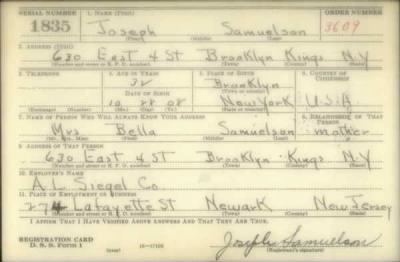 SERIAL NUMBER 1. NAME (Print) ORDER NUMBER
1835 Joseph Samuelson 3609
(First) (Middle) (Last)
2. ADDRESS (Print)
630 East 4 St Brooklyn Kings N.Y
(Number and street or R. F. D. number) (Town) (County) (State)
3. TELEPHONE 4. AGE IN YEARS 5. PLACE OF BIRTH 6. COUNTRY OF CITIZENSHIP
32 Brooklyn
DATE OF BIRTH (Town or county)
10 08 New York U.S.A
(Exchange) (Number) (Mo.) (Day) (Yr.) (State or country)
7. NAME OF PERSON WHO WILL ALWAYS KNOW YOUR ADDRESS 8. RELATIONSHIP OF THAT PERSON
Mrs Bella Samuelson mother
(Mr., Mrs., Miss) (First) (Middle) (Last)
9. ADDRESS OF THAT PERSON
630 East 4 St Brooklyn Kings N.Y
(Number and street or R. F. D. number) (Town) (County) (State)
10. EMPLOYER'S NAME
A L Siegel Co
11. PLACE OF EMPLOYMENT OR BUSINESS
274 Lafayette St Newark New Jersey
(Number and street or R. F. D. number) (Town) (County) (State)
I AFFIRM THAT I HAVE VERIFIED ABOVE ANSWERS AND THAT THEY ARE TRUE.
REGISTRATION CARD
D. S. S. Form 1 (over) 16—17105 Joseph Samuelson
(Registrant's signature)